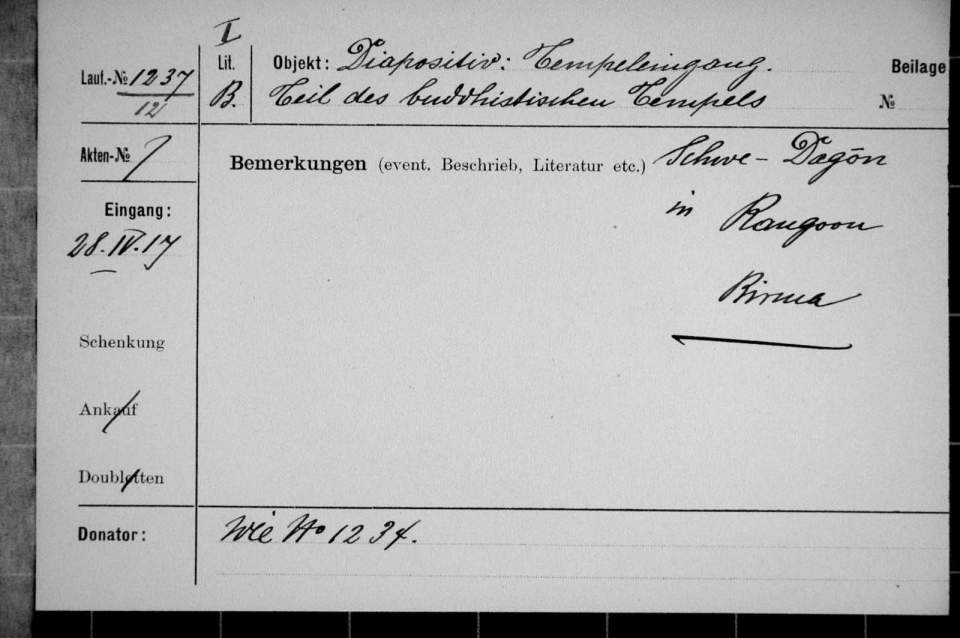 I
Lauf.-№ 1237
12
Lit.
B.
Objekt: Diapositiv: Tempeleingang.
Teil des buddhistischen Tempels
Beilage
№
Akten-№
Bemerkungen (event. Beschrieb, Literatur etc.) Schwe-Dagōn
in Rangoon
Birma
Eingang:
28.IV.17
Schenkung
Ankauf
Doubletten
Donator: Wie No 1234.